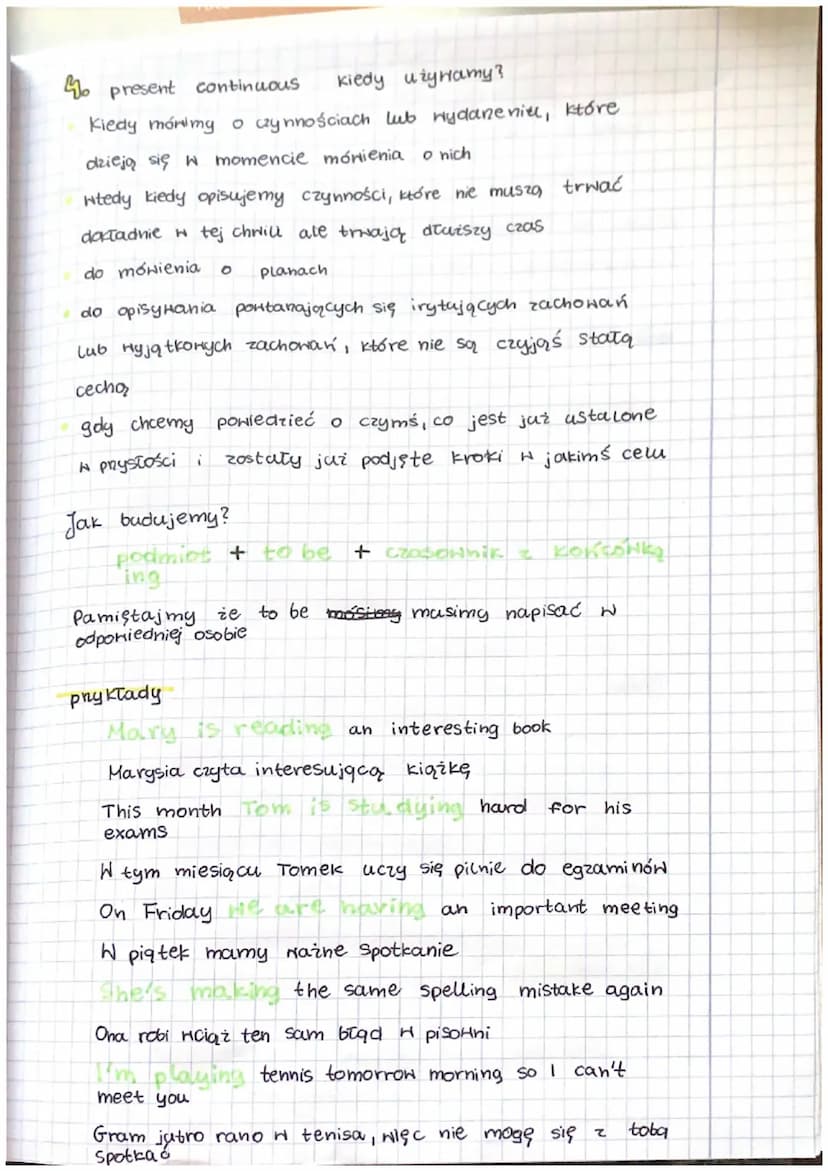 4. present continuous kiedy używamy?
Kiedy mówimy o czynnościach lub wydarzeniu, które
dzieją się w momencie mówienia o nich
wtedy kiedy opisujemy czynności, które nie muszą trwać
dokładnie w tej chwili ale trwają dłuższy czas
do mówienia o planach
do opisywania powtarzających się irytujących zachowań
lub wyjątkowych zachowań, które nie są czyjąś stałą
cechą
gdy chcemy powiedzieć o czymś, co jest już ustalone
w przyszłości i zostały już podjęte kroki w jakimś celu
Jak budujemy?
podmiot + to be + czasownik z końcówką
ing
Pamiętajmy że to be musimy napisać w
odpowiedniej osobie
przykłady
Mary is reading an interesting book
Marysia czyta interesującą książkę
This month Tom is studying hard for his
exams
W tym miesiącu Tomek uczy się pilnie do egzaminów
On Friday we are having an important meeting
W piątek mamy ważne spotkanie
She's making the same spelling mistake again
Ona robi wciąż ten sam błąd w pisowni
I'm playing tennis tomorrow morning so I can't
meet you
Gram jutro rano w tenisa, więc nie mogę się z tobą
spotkać